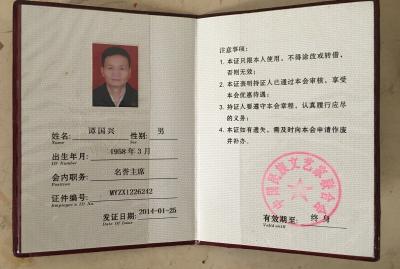 姓名: 谭国兴 性别: 男
Name Sex
出生年月: 1958年3月
会内职务: 名誉主席
Position
证件编号: MYZX1226242
发证日期: 2014-01-25
Date Of Issue
注意事项:
1. 本证只限本人使用，不得涂改或转借，
否则无效;
2. 本证表明持证人已通过本会审核，享受
本会优惠待遇;
3. 持证人要遵守本会章程，认真履行应尽
的义务;
4. 本证如有遗失，需及时向本会申请作废
并补办。
中国民族文艺家联合会
有效期至: 终身
Valid until